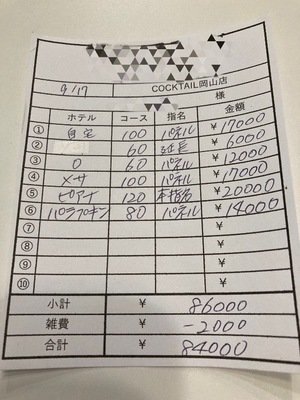 COCKTAIL岡山店
9/17 様
ホテル コース 指名 金額
① 自宅 100 パネル ¥17000
② 60 延長 ¥6000
③ O 60 パネル ¥12000
④ メサ 100 パネル ¥17000
⑤ ピアナ 120 本指名 ¥20000
⑥ パラプキン 80 パネル ¥14000
⑦ ¥
⑧ ¥
⑨ ¥
⑩ ¥
小計 ¥ 86000
雑費 ¥ -2000
合計 ¥ 84000